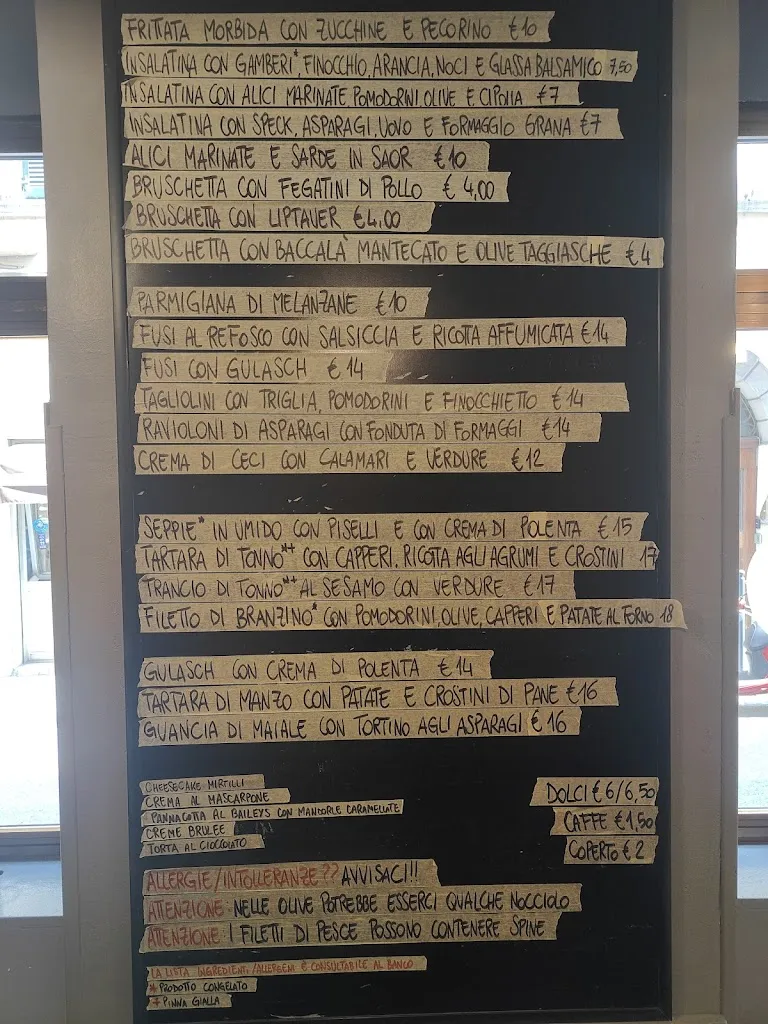 FRITTATA MORBIDA CON ZUCCHINE E PECORINO €10
INSALATINA CON GAMBERI*, FINOCCHIO, ARANCIA, NOCI E GLASSA BALSAMICO 7,50
INSALATINA CON ALICI MARINATE, POMODORINI, OLIVE E CIPOLLA €7
INSALATINA CON SPECK, ASPARAGI, UOVO E FORMAGGIO GRANA €7
ALICI MARINATE E SARDE IN SAOR €10
BRUSCHETTA CON FEGATINI DI POLLO €4,00
BRUSCHETTA CON LIPTAUER €4,00
BRUSCHETTA CON BACCALÀ MANTECATO E OLIVE TAGGIASCHE €4
PARMIGIANA DI MELANZANE €10
FUSI AL REFOSCO CON SALSICCIA E RICOTTA AFFUMICATA €14
FUSI CON GULASCH €14
TAGLIOLINI CON TRIGLIA, POMODORINI E FINOCCHIETTO €14
RAVIOLONI DI ASPARAGI CON FONDUTA DI FORMAGGI €14
CREMA DI CECI CON CALAMARI E VERDURE €12
SEPPIE* IN UMIDO CON PISELLI E CON CREMA DI POLENTA €15
TARTARA DI TONNO*+ CON CAPPERI, RICOTTA AGLI AGRUMI E CROSTINI 17
TRANCIO DI TONNO*+ AL SESAMO CON VERDURE €17
FILETTO DI BRANZINO* CON POMODORINI, OLIVE, CAPPERI E PATATE AL FORNO 18
GULASCH CON CREMA DI POLENTA €14
TARTARA DI MANZO CON PATATE E CROSTINI DI PANE €16
GUANCIA DI MAIALE CON TORTINO AGLI ASPARAGI €16
CHEESECAKE MIRTILLI
CREMA AL MASCARPONE
PANNACOTTA AL BAILEYS CON MANDORLE CARAMELLATE
CREME BRULEE
TORTA AL CIOCCOLATO
DOLCI €6/6,50
CAFFE €1,50
COPERTO €2
ALLERGIE/INTOLLERANZE?? AVVISACI!!
ATTENZIONE: NELLE OLIVE POTREBBE ESSERCI QUALCHE NOCCIOLO
ATTENZIONE: I FILETTI DI PESCE POSSONO CONTENERE SPINE
LA LISTA INGREDIENTI/ALLERGENI È CONSULTABILE AL BANCO
* PRODOTTO CONGELATO
+ PINNA GIALLA